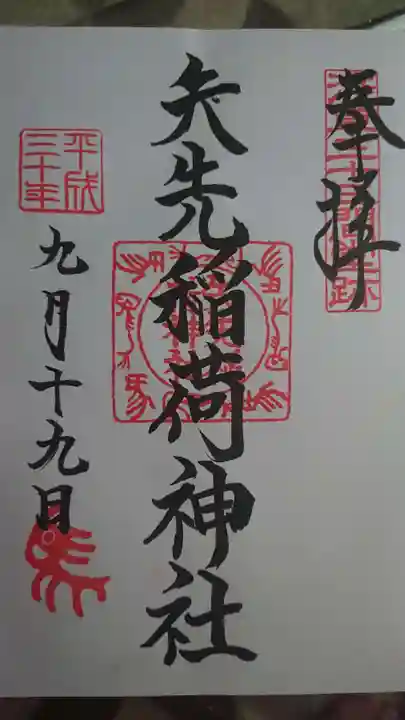 奉拝
矢先稲荷神社
平成三十年
九月十九日